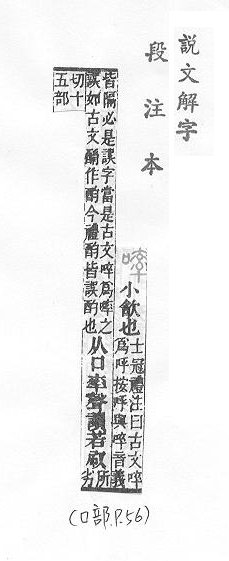 說文解字
段注本
小㱃也
士冠禮注曰古文啐
爲呼按呼與啐音義
皆隔必是誤字當是古文啐爲㗚之
誤如古文酳作酌今禮酌皆誤酌也
从口率聲讀若㕞
所
劣
切十
五部
(口部.P.56)